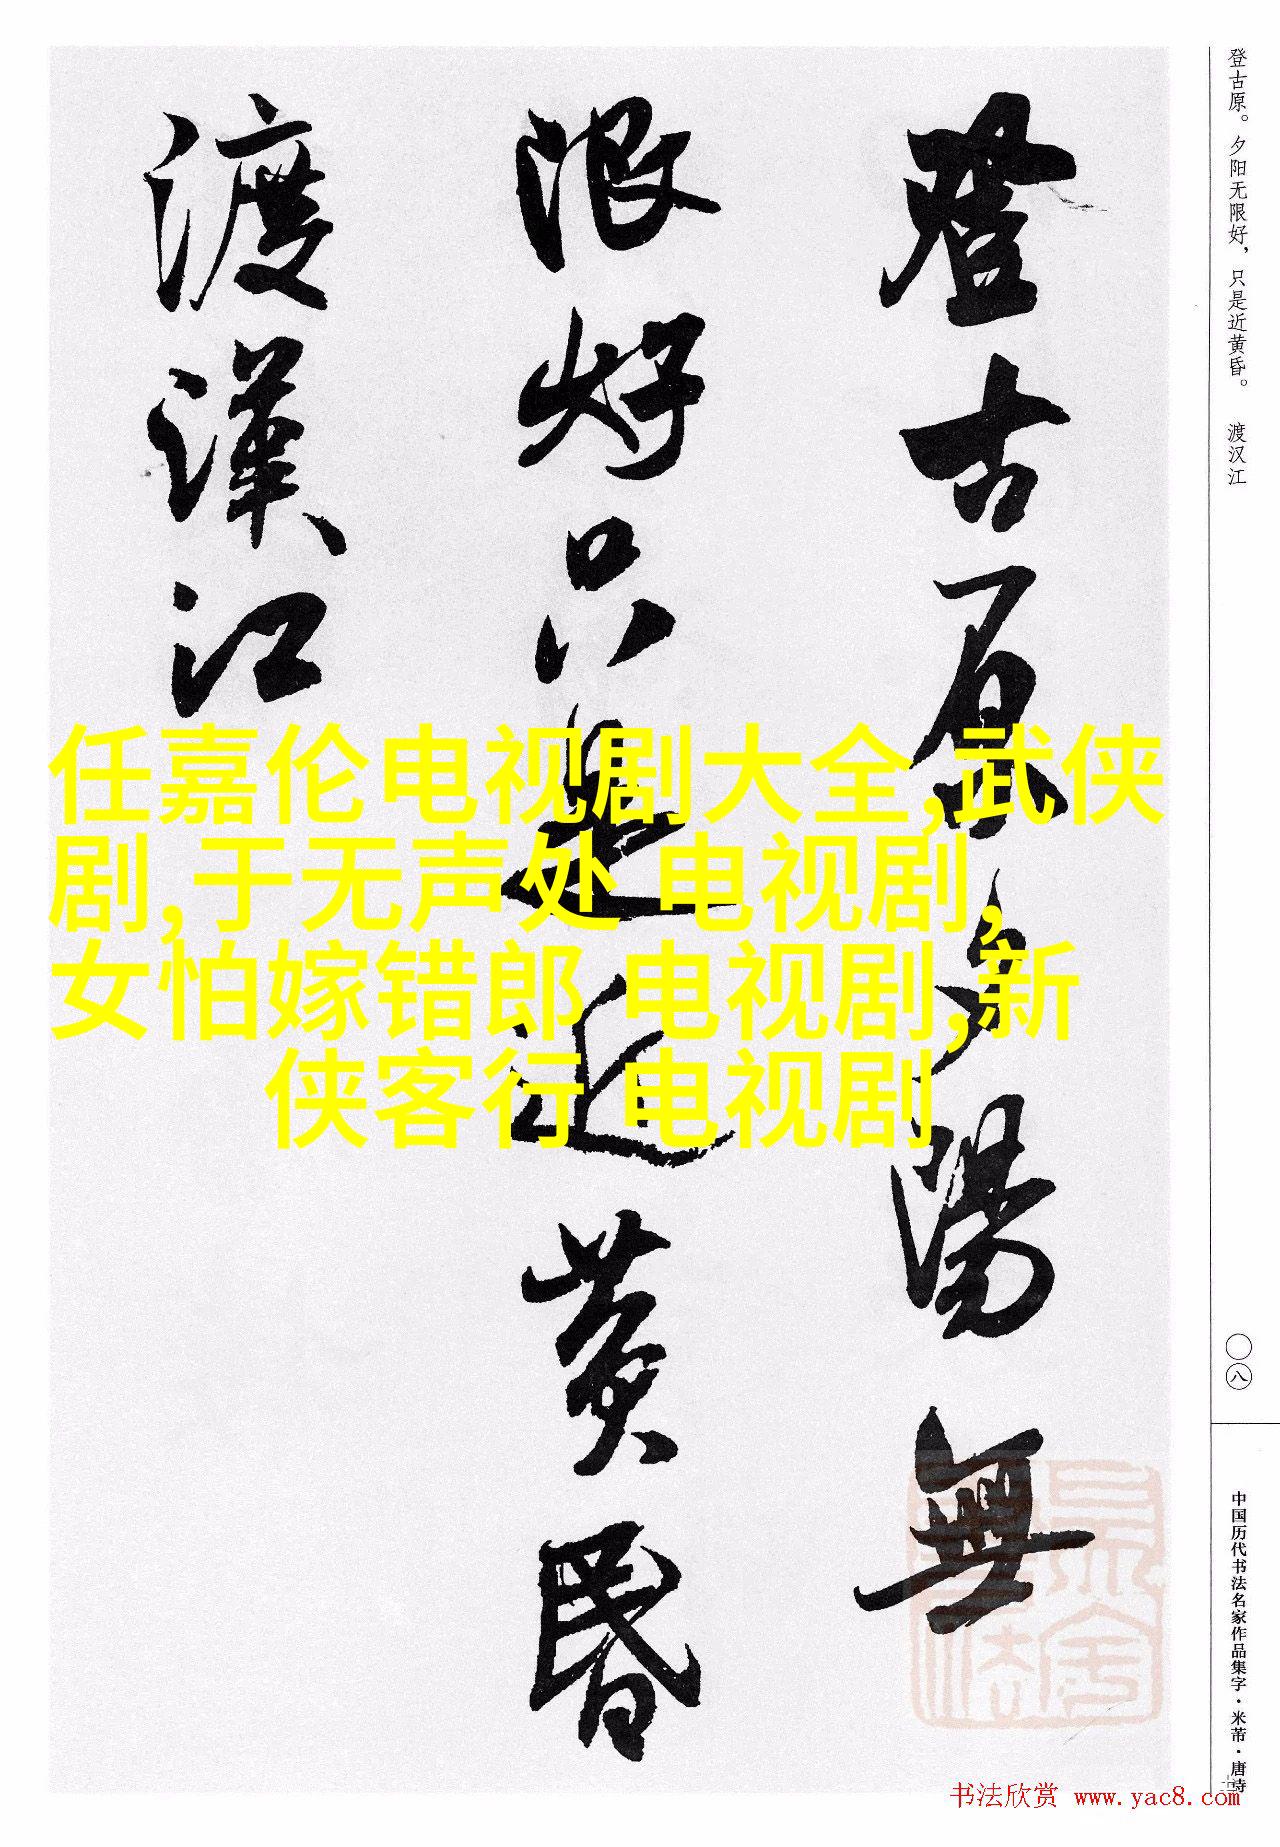 登古原夕陽無
限好只是近黄昏
渡漢江
登古原。夕阳无限好，只是近黄昏。 渡汉江
〇八
中国历代书法名家作品集字·米芾·唐诗
任嘉伦电视剧大全,武侠
剧,于无声处 电视剧,
女怕嫁错郎 电视剧,新
侠客行 电视剧
书法欣赏 www.yac8.com